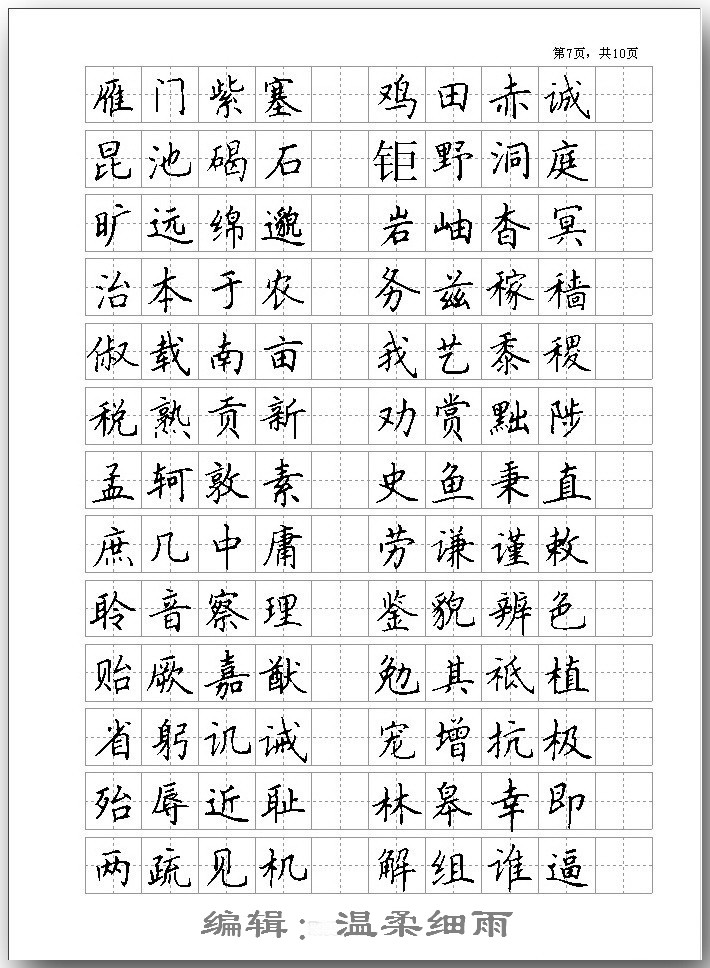 第7页，共10页
雁门紫塞 鸡田赤诚
昆池碣石 钜野洞庭
旷远绵邈 岩岫杳冥
治本于农 务兹稼穑
俶载南亩 我艺黍稷
税熟贡新 劝赏黜陟
孟轲敦素 史鱼秉直
庶几中庸 劳谦谨敕
聆音察理 鉴貌辨色
贻厥嘉猷 勉其祗植
省躬讥诫 宠增抗极
殆辱近耻 林皋幸即
两疏见机 解组谁逼
编辑：温柔细雨